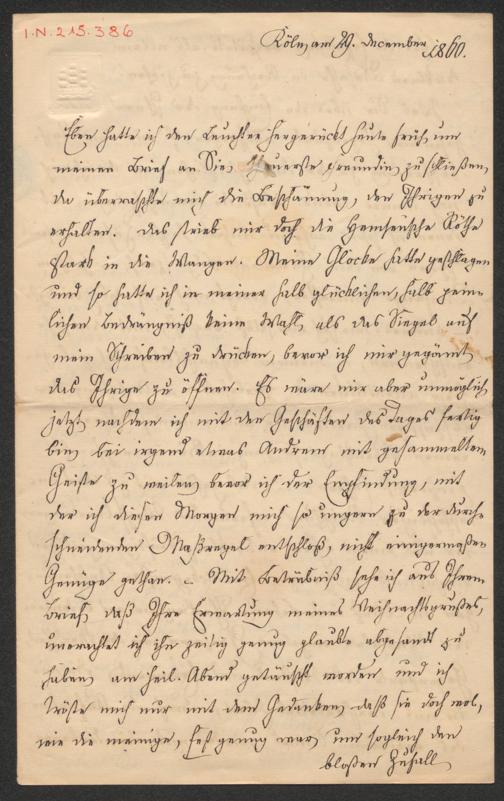 I.N. 215.386
Köln, am 29. December 1860.
Eben hatte ich den Leuchter hergerückt heute früh, um
meinen Brief an Sie, theuerste Freundin, zu schließen,
da überraschte mich die Beschämung, den Ihrigen zu
erhalten. Das trieb mir doch die Röthe
stark in die Wangen. Meine Glocke hatte geschlagen
und so hatte ich in meiner halb glücklichen, halb pein-
lichen Bedrängniß keine Wahl, als das Siegel auf
mein Schreiben zu drücken, bevor ich mir gegönnt
das Ihrige zu öffnen. Es wäre mir aber unmöglich,
jetzt, nachdem ich mit den Geschäften des Tages fertig
bin, bei irgend etwas Anderem mit gesammeltem
Geiste zu weilen, bevor ich der Empfindung, mit
der ich diesen Morgen mich so ungern zu der durch-
schneidenden Maßregel entschloß, nicht einigermaßen
Genüge gethan. – Mit Betrübniß sehe ich aus Ihrem
Brief, daß Ihre Erwartung meines Weihnachtsgrußes,
unerachtet ich ihn zeitig genug glaubte abgesandt zu
haben, am heil. Abend getäuscht worden und ich
tröste mich nur mit dem Gedanken, daß sie doch wol,
wie die meinige, fest genug war, um sogleich den
bloßen Zufall